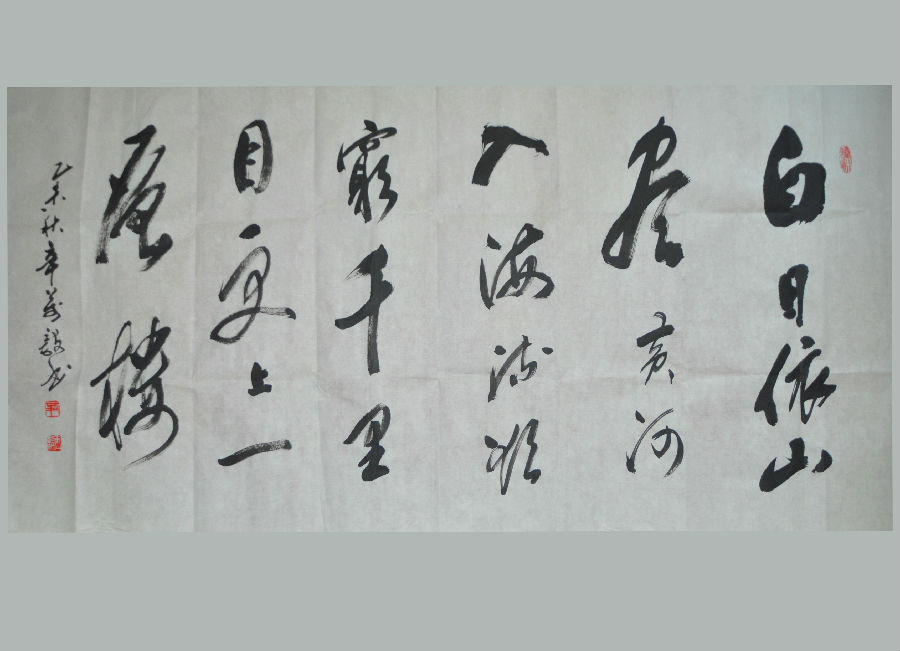 白日依山
尽黄河
入海流欲
穷千里
目更上一
层楼
乙未秋辛